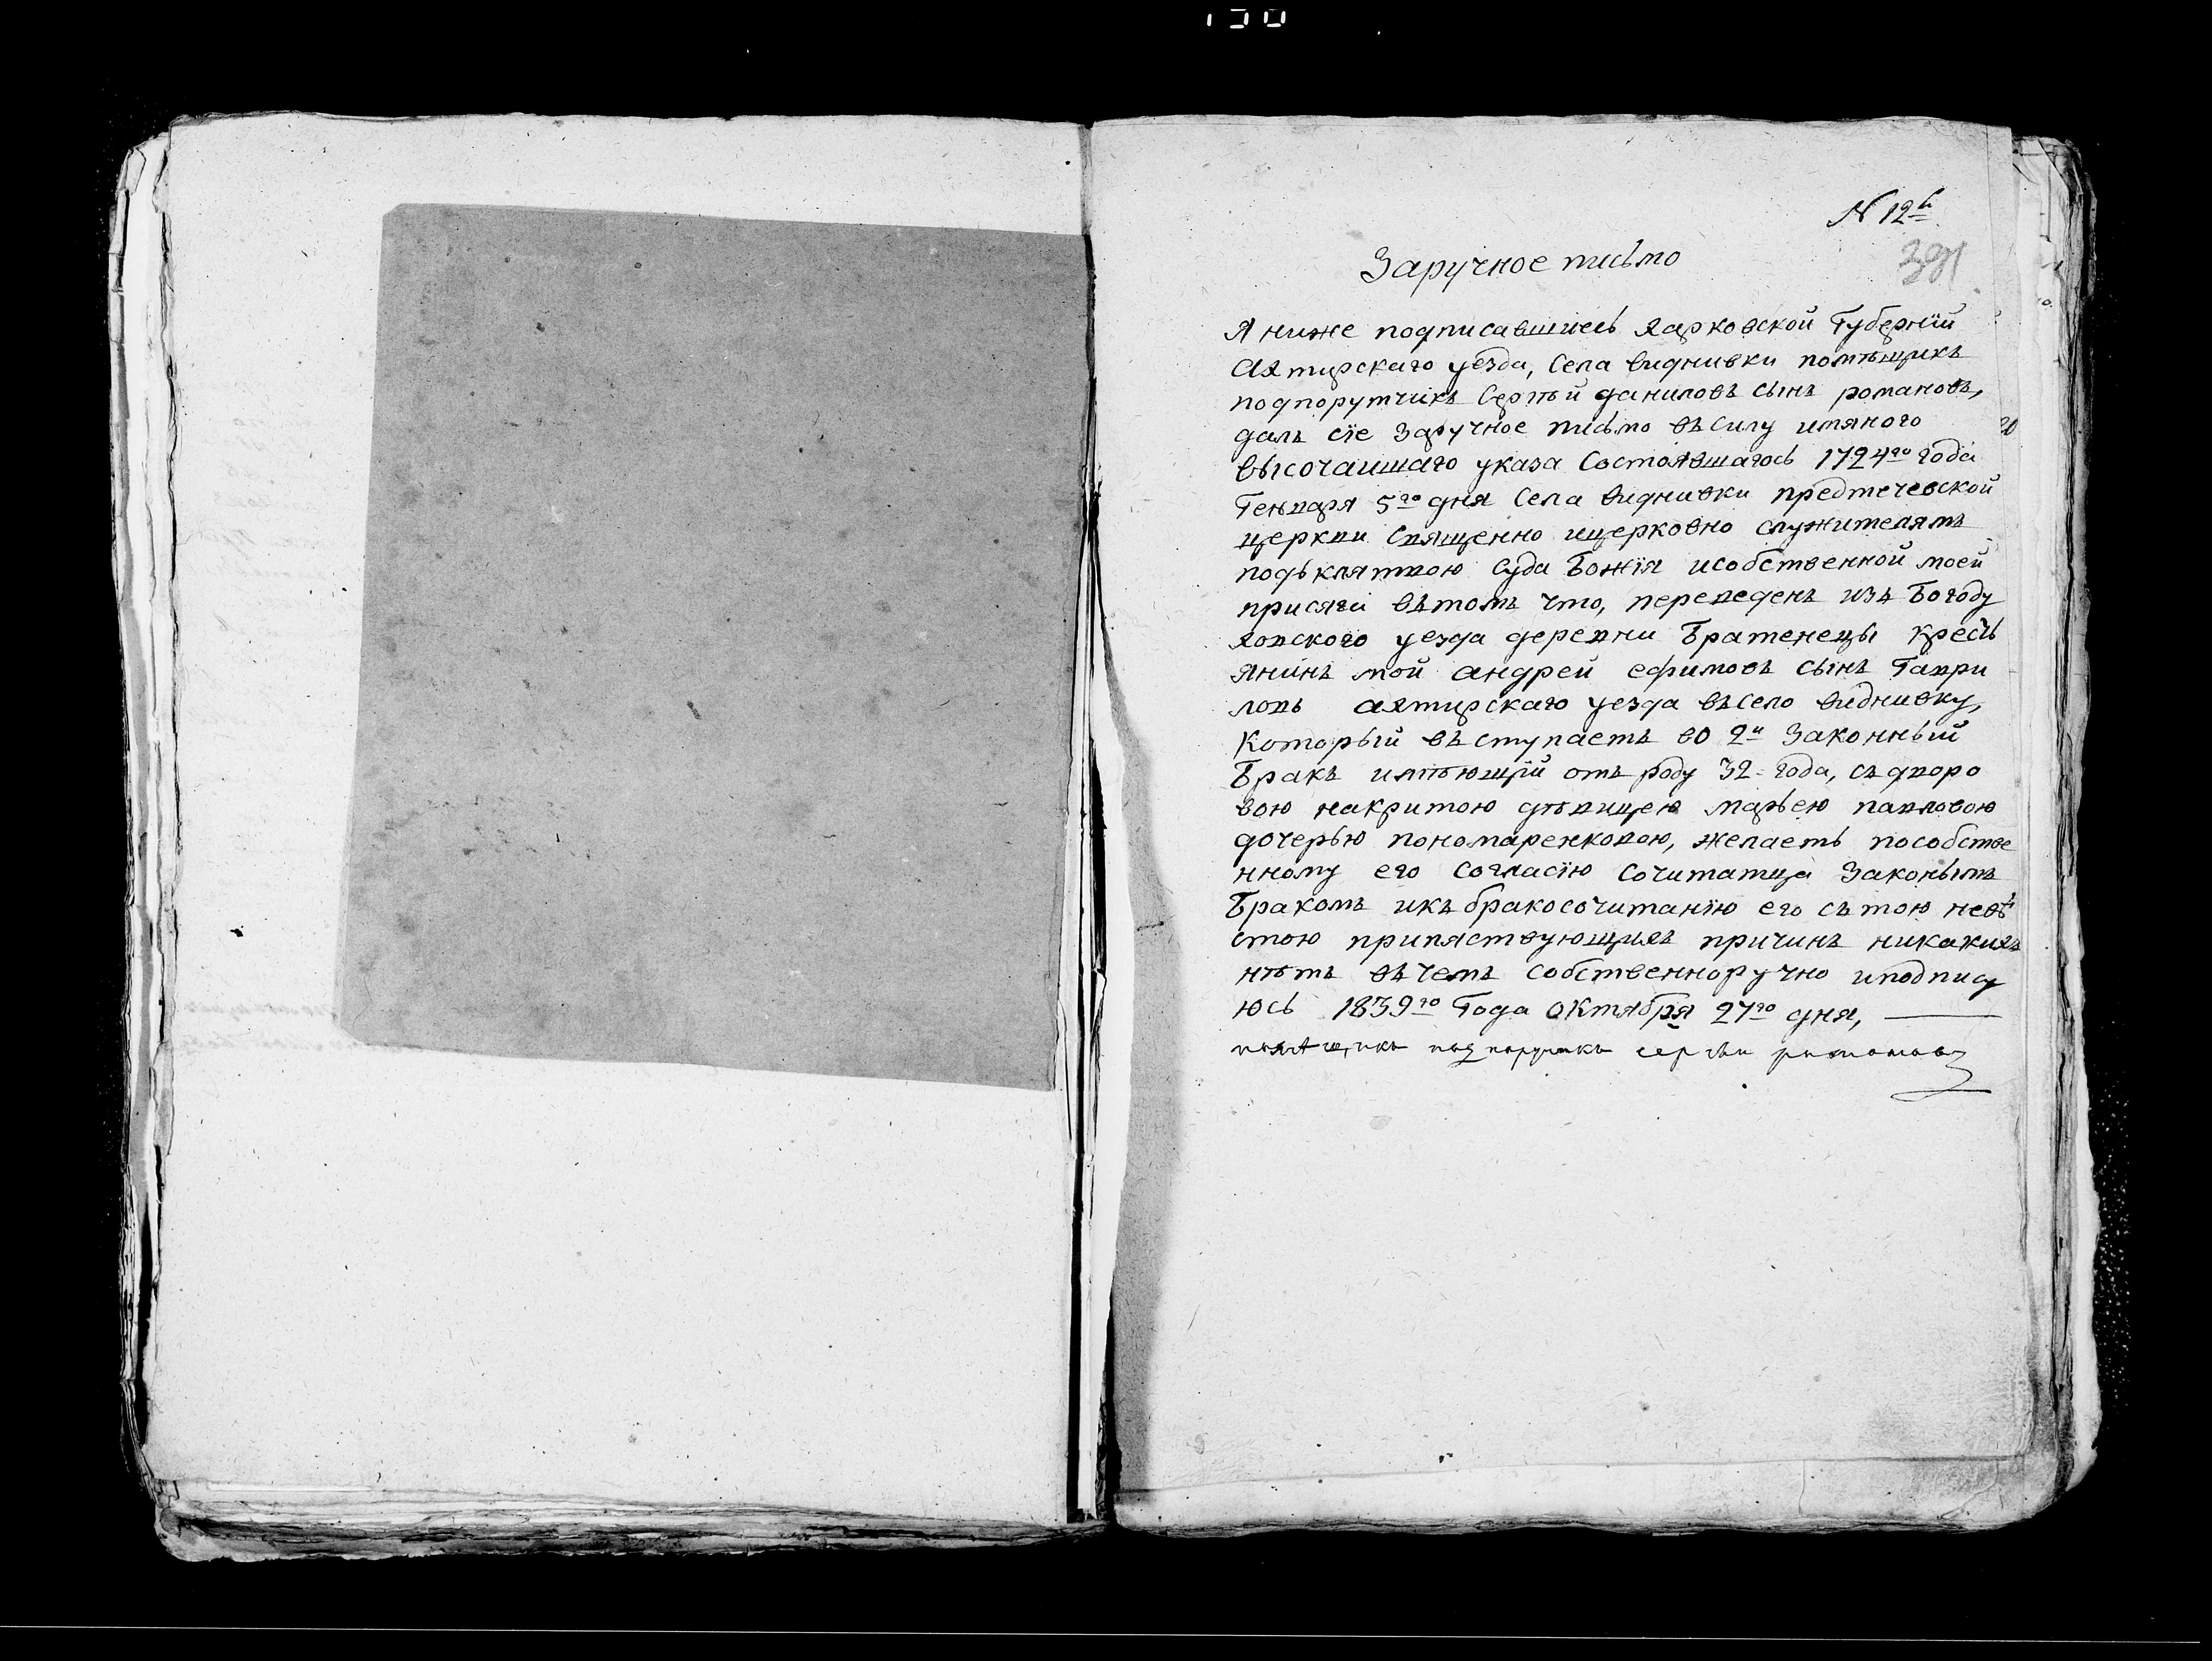 N 12й
391
Заручное письмо
Я ниже подписавшиись Харковской Губернїи
Ахтирскаго уезда, Села видниѳки помѣщикъ
подпорутчикъ Сергѣй даниловъ сынъ романовъ,
далъ сїе Заручное письмо въ силу имяного
высочаишаго указа Состоявшагось 1724го года
Генваря 5го дня Села видниѳки предтечеѳской
церкви Священно ицерковно служителямъ
подъ клятвою Суда Божїя исобственной моей
присяги въ томъ что, переведенъ изъ Богоду
ховского уезда деревни Братенецы Кресть
янинъ мой андрей ефимовъ сынъ Гаври
ловъ ахтирскаго уезда въ село видниѳку,
Который въ ступаетъ во 2й Законный
Бракъ имѣющїй отъ роду 32 года, съ дворо
вою накритою дѣвицею марьею павловою
дочерью пономаренковою, желаетъ пособстве
нному его согласїю сочитатца Законымъ
Бракомъ икъ бракосочитанїю его сътою невѣ
стою припяствующихъ причинъ никакихъ
нѣтъ въ чемъ собственноручно иподпису
юсь 1839го Года Октября 27го дня,
помѣщикъ подпоручикъ сергѣи романовъ